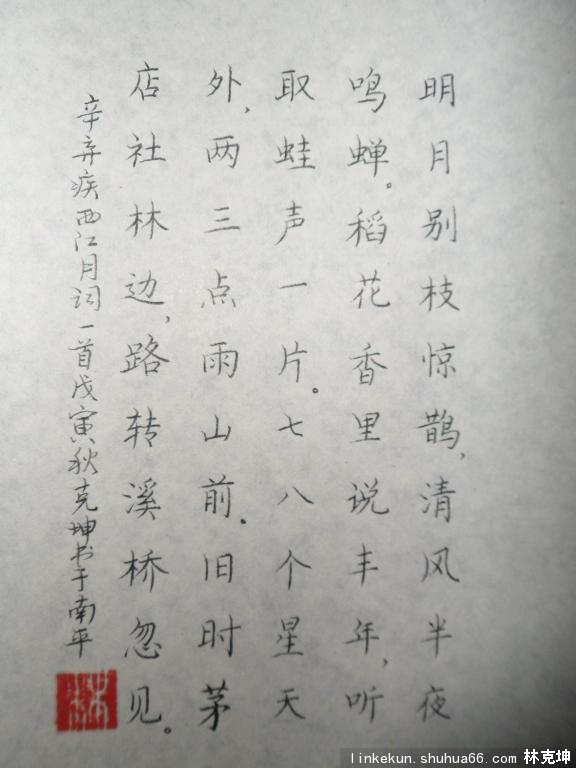 明月别枝惊鹊，清风半夜
鸣蝉。稻花香里说丰年，听
取蛙声一片。七八个星天
外，两三点雨山前。旧时茅
店社林边，路转溪桥忽见。
辛弃疾西江月词一首戊寅秋克坤书于南平
linkekun.shuhua66.com 林克坤